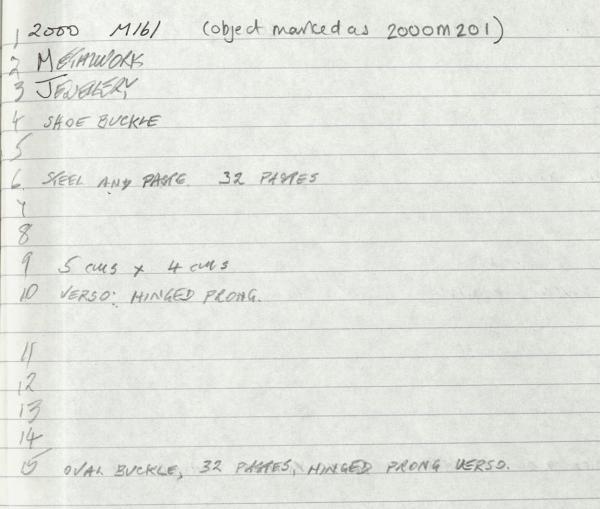 1 2000 M161 (object marked as 2000M201)
2 METALWORKS
3 JEWELLERY
4 SHOE BUCKLE
5
6 STEEL AND PASTE. 32 PASTES
7
8
9 5 cms x 4 cms
10 VERSO: HINGED PRONG.
11
12
13
14
15 OVAL BUCKLE, 32 PASTES, HINGED PRONG VERSO.